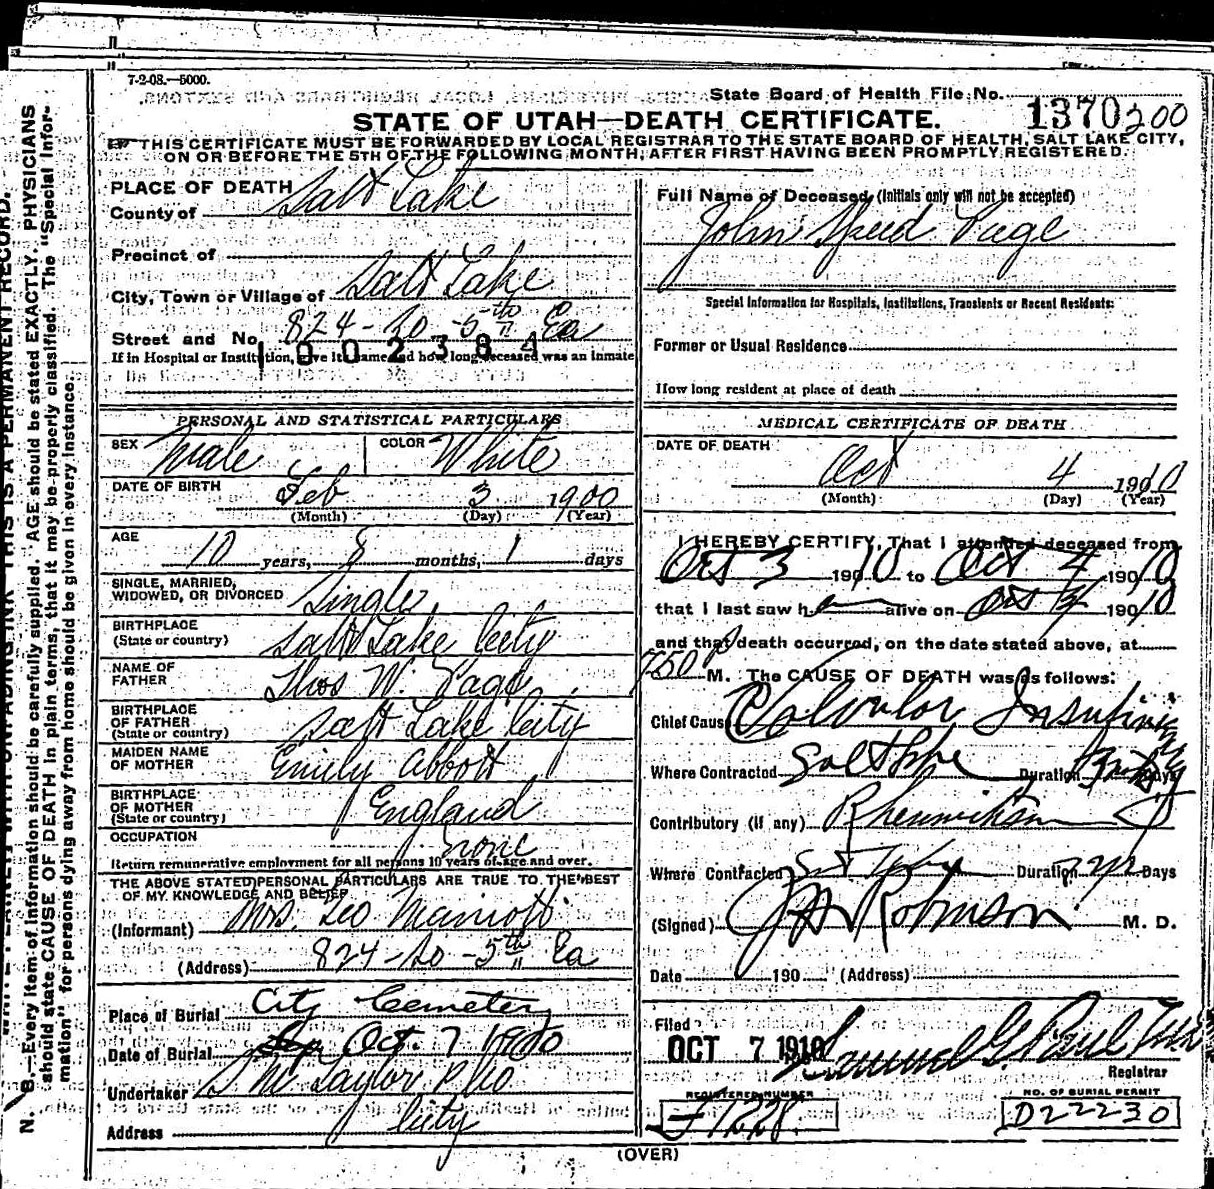 7-2-08.—5000.
State Board of Health File No. 1370 200
STATE OF UTAH—DEATH CERTIFICATE.
THIS CERTIFICATE MUST BE FORWARDED BY LOCAL REGISTRAR TO THE STATE BOARD OF HEALTH, SALT LAKE CITY,
ON OR BEFORE THE 5TH OF THE FOLLOWING MONTH, AFTER FIRST HAVING BEEN PROMPTLY REGISTERED.
PLACE OF DEATH
County of Salt Lake
Precinct of
City, Town or Village of Salt Lake
Street and No. 824 - So - 5th Ea
1002384
If in Hospital or Institution, give its name and how long deceased was an inmate
PERSONAL AND STATISTICAL PARTICULARS
SEX Male COLOR White
DATE OF BIRTH Feb 3 1900
(Month) (Day) (Year)
AGE 10 years, 8 months, 1 days
SINGLE, MARRIED,
WIDOWED, OR DIVORCED Single
BIRTHPLACE
(State or country) Salt Lake City
NAME OF
FATHER Thos W. Page
BIRTHPLACE
OF FATHER
(State or country) Salt Lake City
MAIDEN NAME
OF MOTHER Emily Abbott
BIRTHPLACE
OF MOTHER
(State or country) England
OCCUPATION None
Return remunerative employment for all persons 10 years of age and over.
THE ABOVE STATED PERSONAL PARTICULARS ARE TRUE TO THE BEST
OF MY KNOWLEDGE AND BELIEF
(Informant) Mrs. Leo Marriott
(Address) 824 - So - 5th Ea
Place of Burial City Cemetery
Date of Burial Oct. 7 1910
Undertaker S M Taylor & Co
Address City
Full Name of Deceased (Initials only will not be accepted)
John Speed Page
Special Information for Hospitals, Institutions, Transients or Recent Residents:
Former or Usual Residence
How long resident at place of death
MEDICAL CERTIFICATE OF DEATH
DATE OF DEATH
Oct 4 1910
(Month) (Day) (Year)
I HEREBY CERTIFY, That I attended deceased from
Oct 3 1910 to Oct 4 1910
that I last saw h alive on Oct 1910
and that death occurred, on the date stated above, at
750 P M. The CAUSE OF DEATH was as follows:
Chief Cause Valvular
Where Contracted Salt Lake Duration Days
Contributory (if any) Rheumatism
Where Contracted Duration Days
(Signed) Robinson M. D.
Date 190 (Address)
Filed
OCT 7 1910 Samuel G. Paul
Registrar
REGISTERED NUMBER
1228.
NO. OF BURIAL PERMIT
D22230
(OVER)
N. B.—Every item of information should be carefully supplied. AGE should be stated EXACTLY. PHYSICIANS
should state CAUSE OF DEATH in plain terms, that it may be properly classified. The "Special Infor-
mation" for persons dying away from home should be given in every instance.